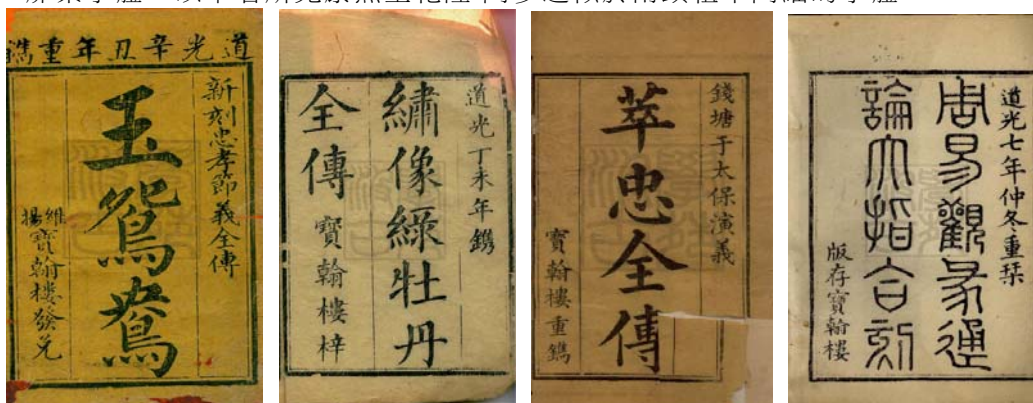 道光辛丑年重鐫
新刻忠孝節義全傳
玉鴛鴦
維揚寶翰樓發兌
道光丁未年鐫
繡像綠牡丹
全傳 寶翰樓梓
錢塘于太保演義
萃忠全傳
寶翰樓重鐫
道光七年仲冬重栞
周易觀彖通
論大指合刻
版存寶翰樓